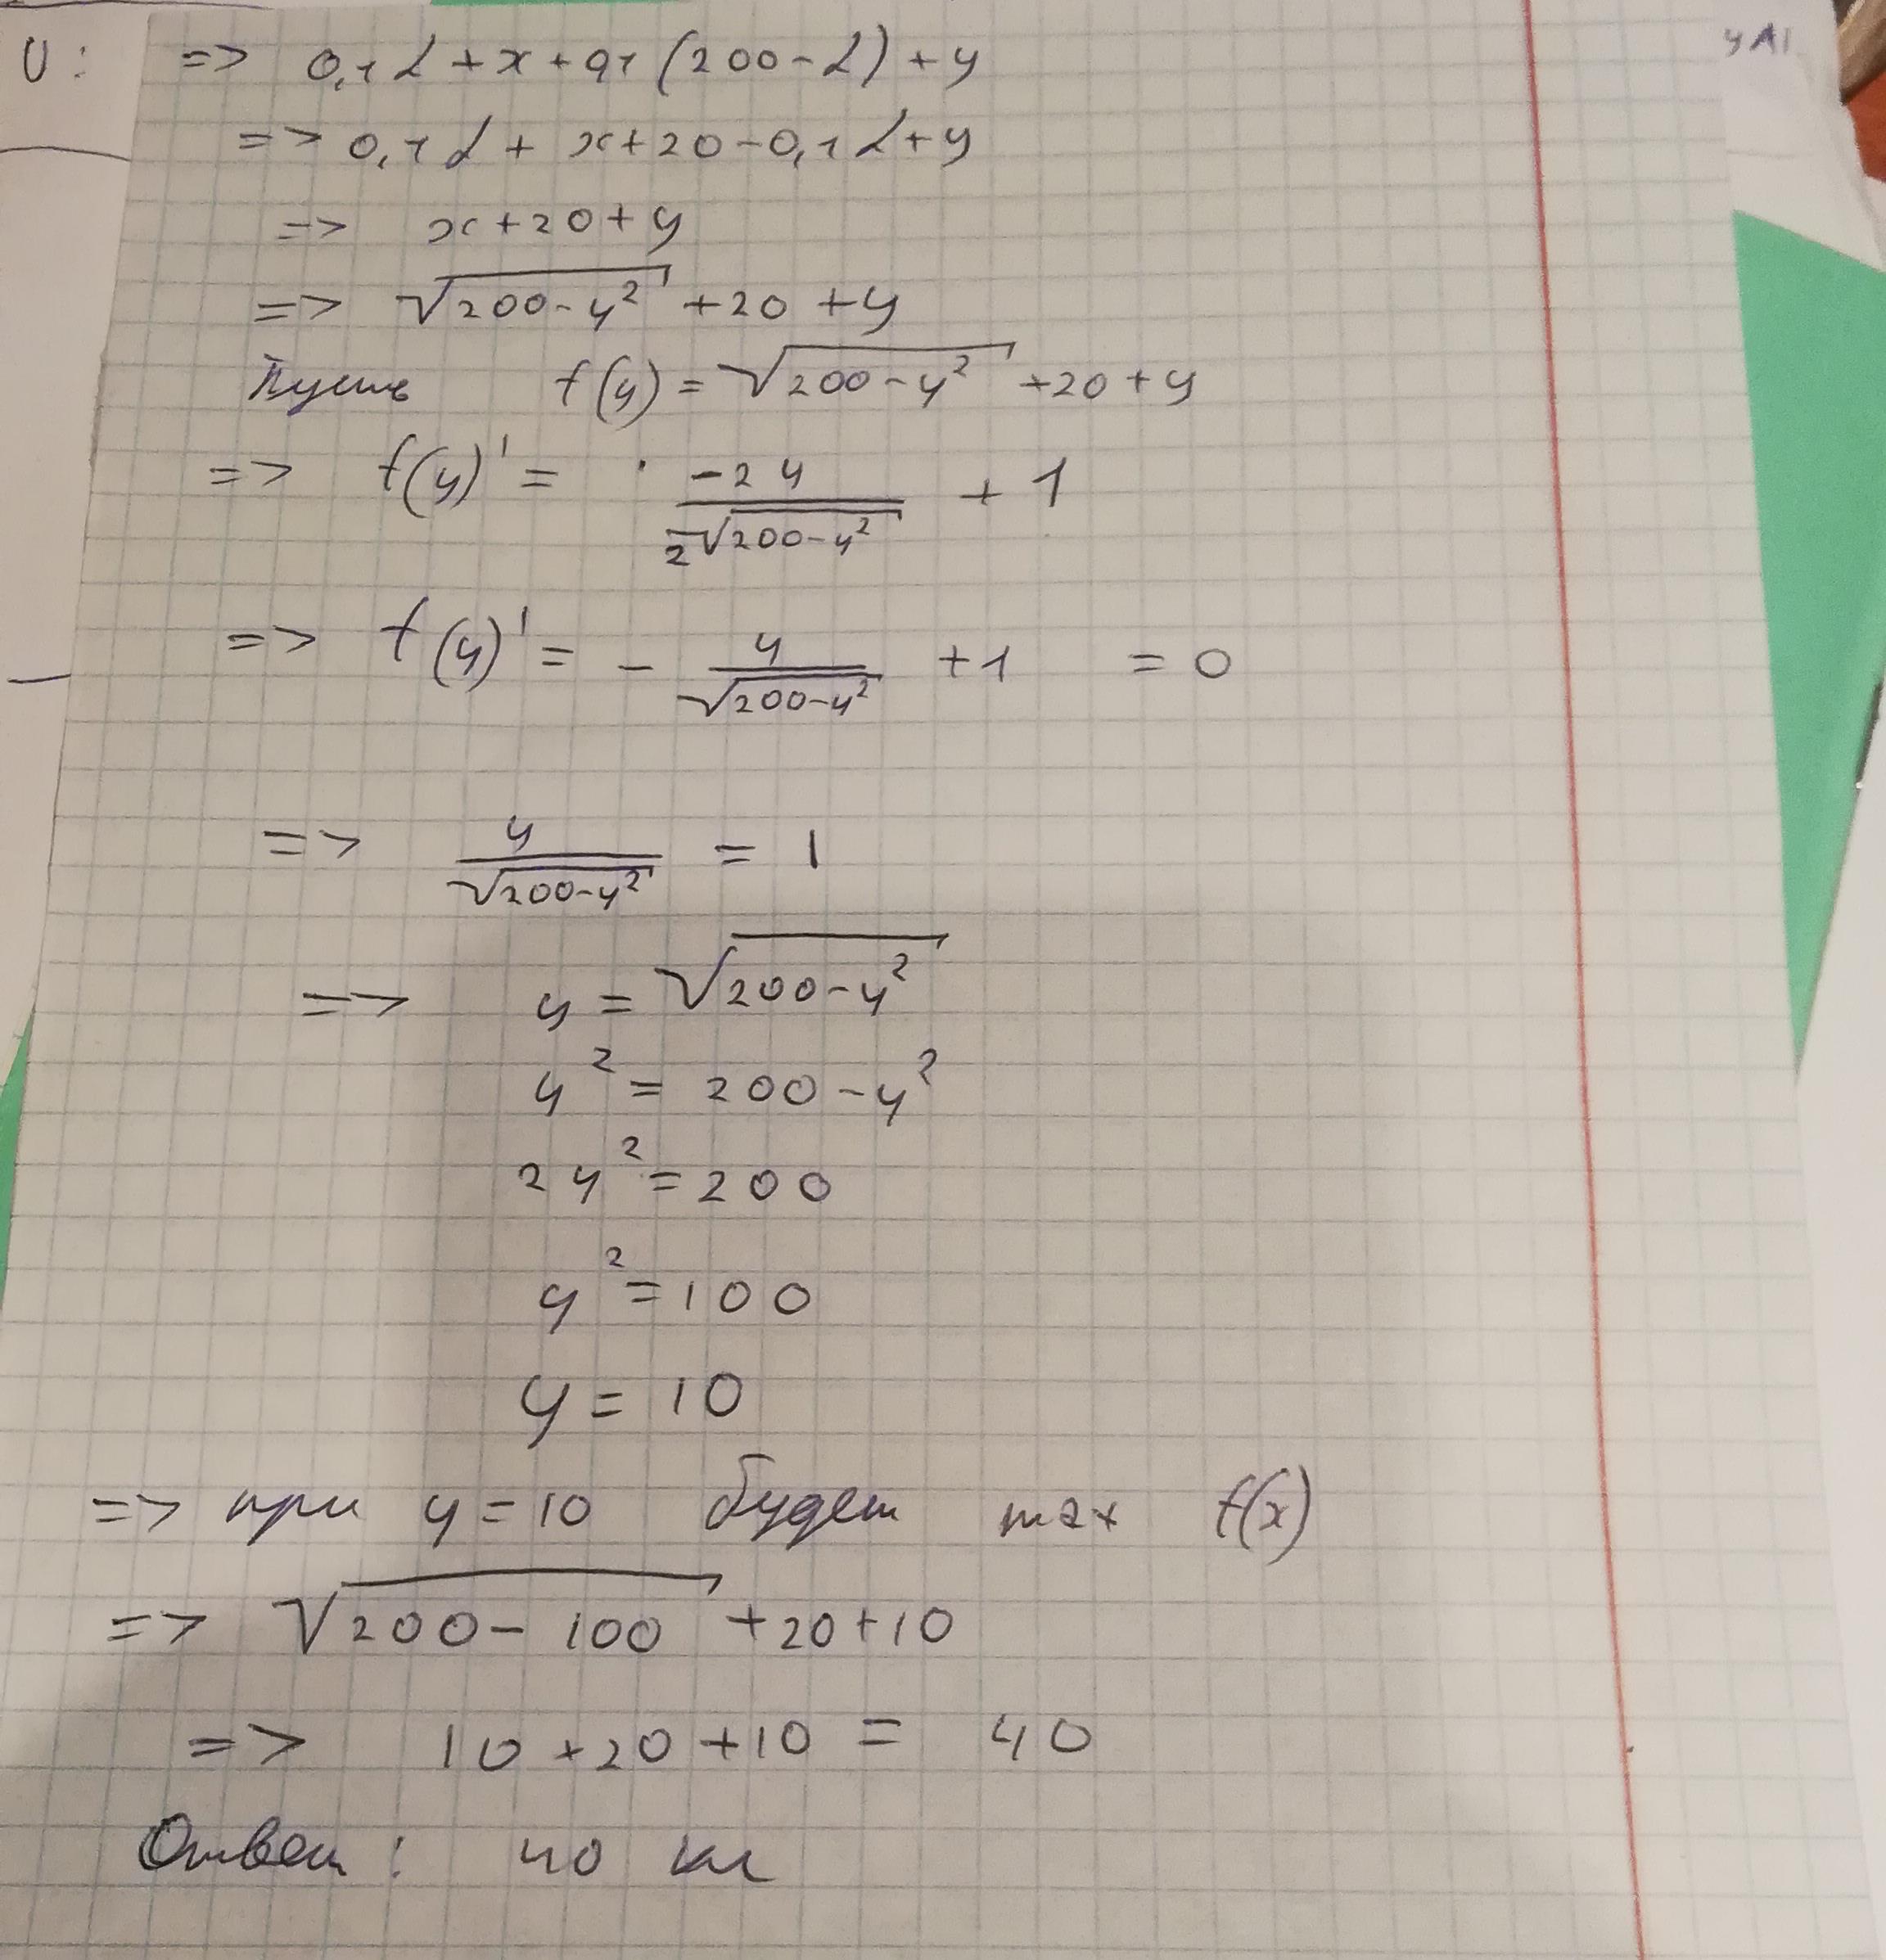 U: => 0,1α + x + 0,1(200 - α) + y
=> 0,1α + x + 20 - 0,1α + y
=> x + 20 + y
=> √(200 - y²) + 20 + y
Пусть f(y) = √(200 - y²) + 20 + y
=> f(y)' = -2y / 2√(200 - y²) + 1
=> f(y)' = - y / √(200 - y²) + 1 = 0
=> y / √(200 - y²) = 1
=> y = √(200 - y²)
y² = 200 - y²
2y² = 200
y² = 100
y = 10
=> при y = 10 будет max f(x)
=> √(200 - 100) + 20 + 10
=> 10 + 20 + 10 = 40
Ответ: 40 кг